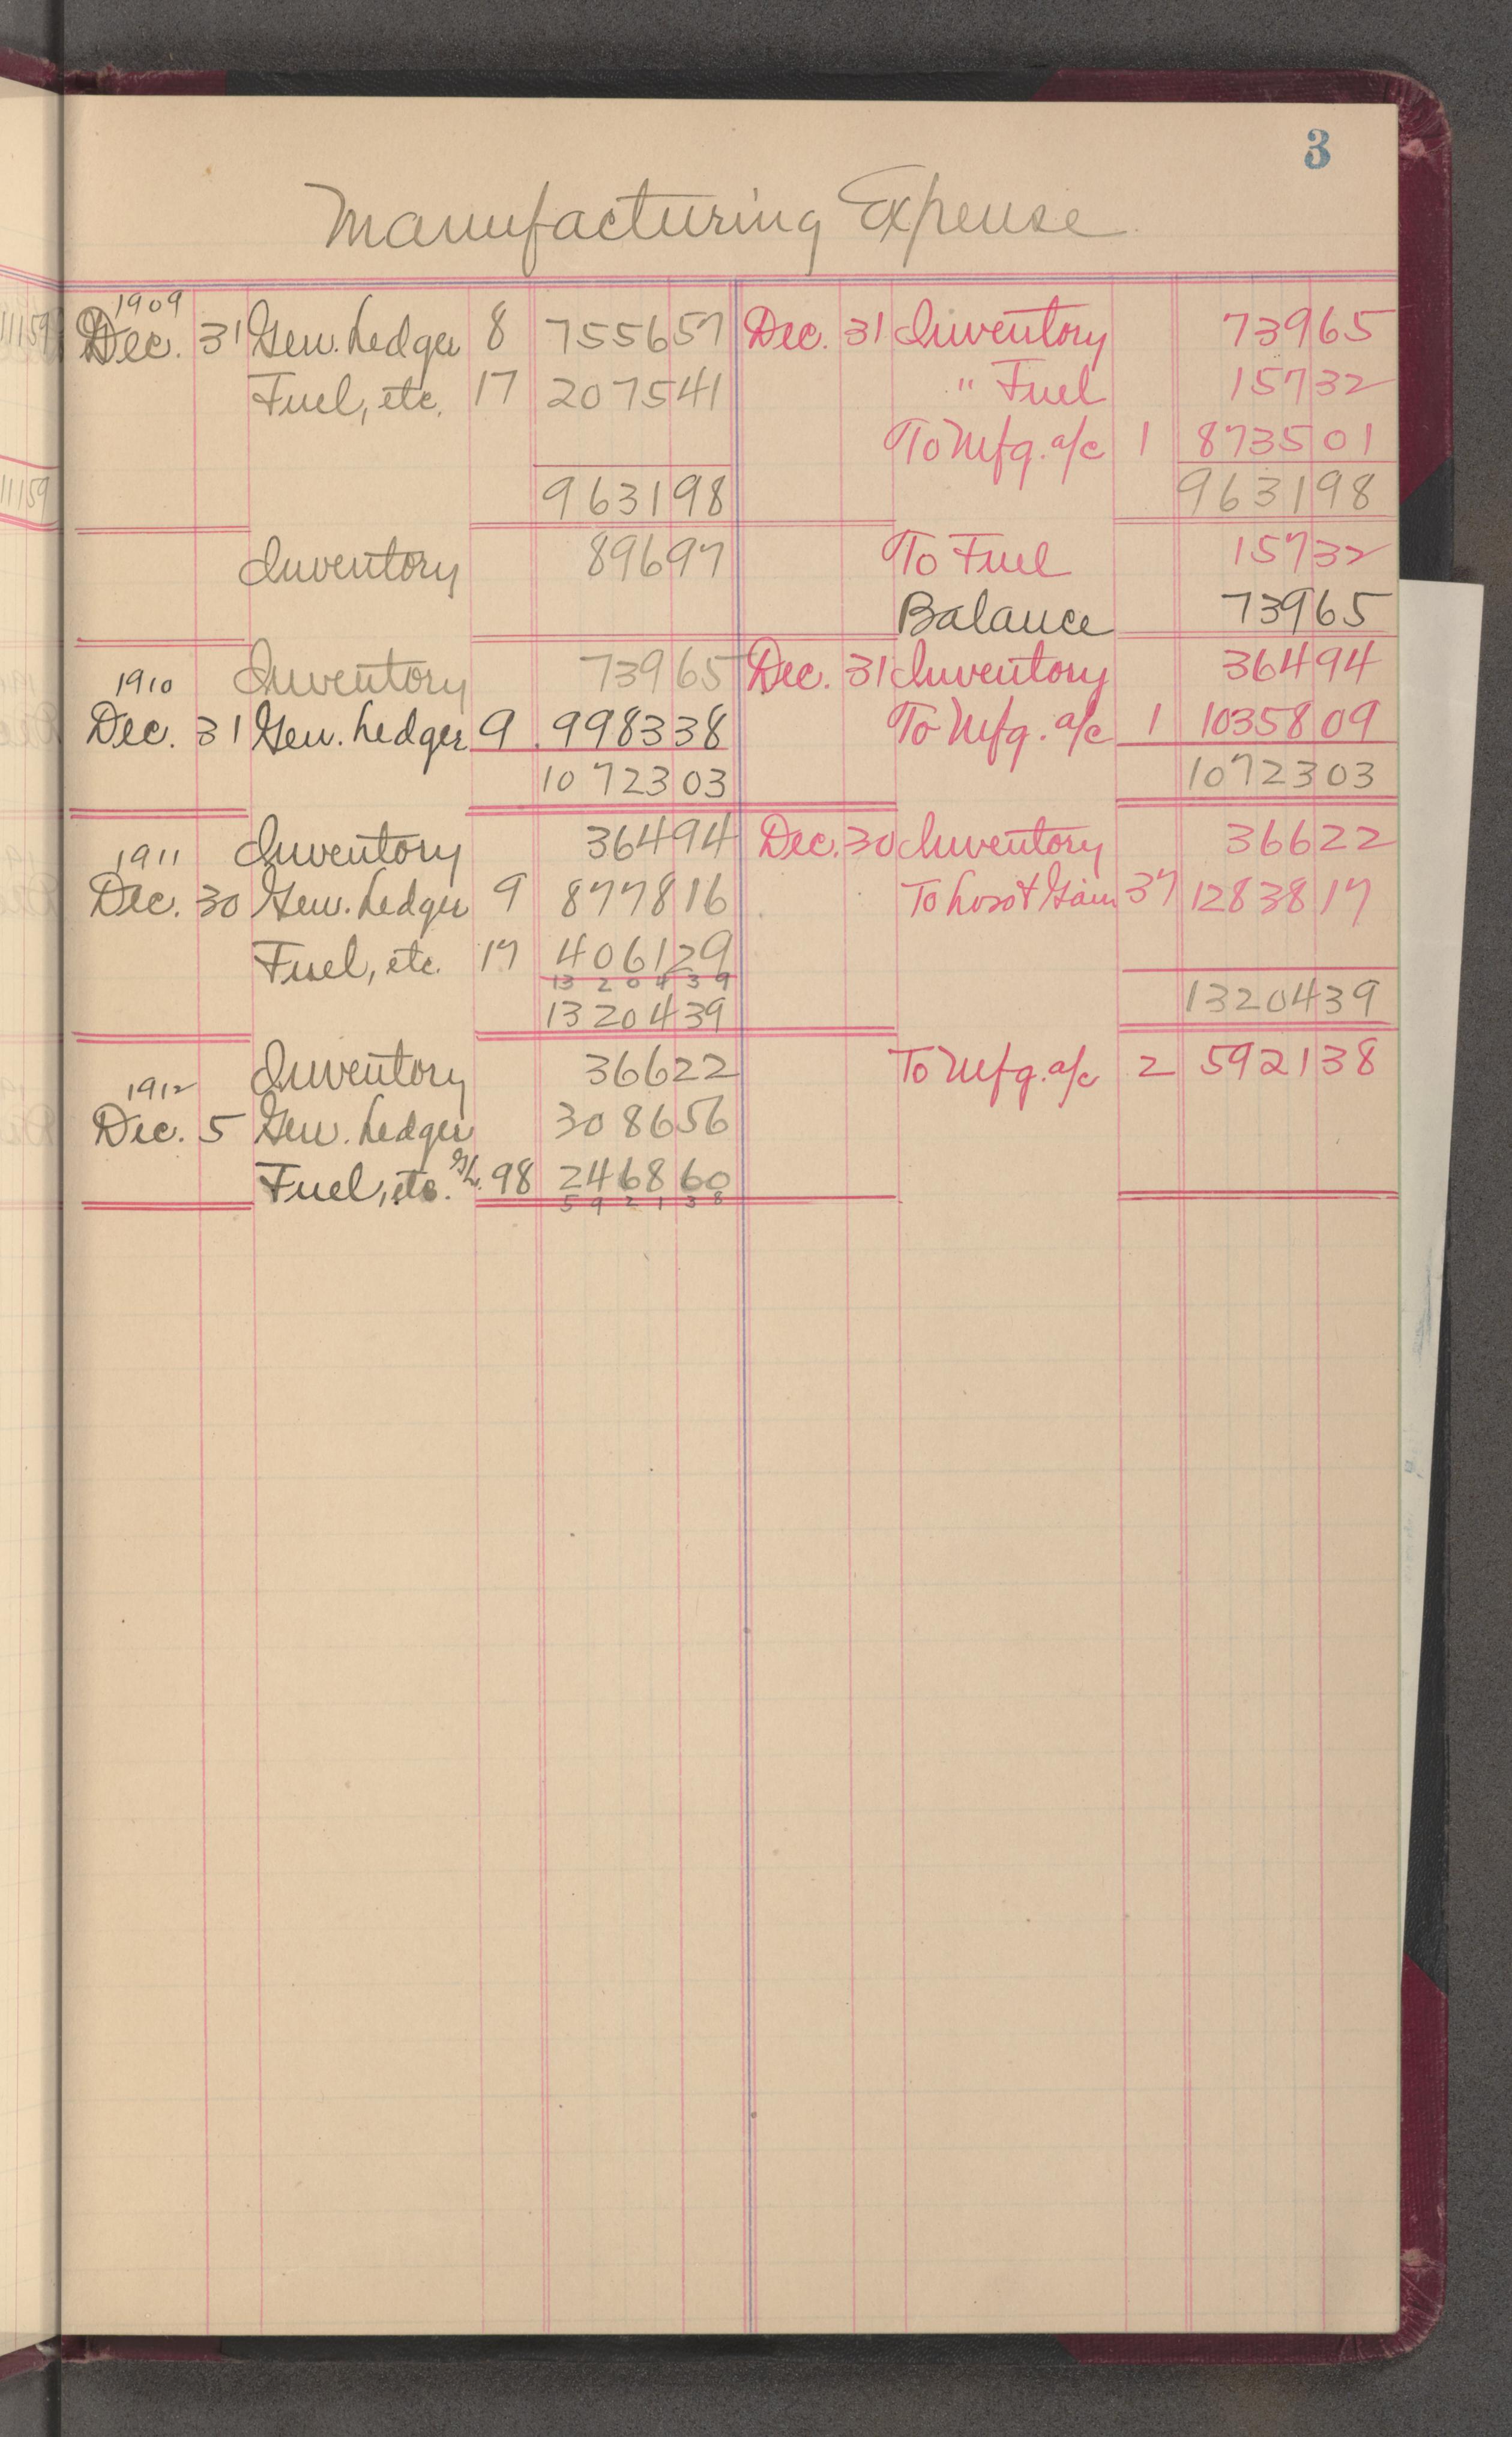 3
Manufacturing Expense
1909
Dec. 31 Gen. Ledger 8 7556 57 Dec. 31 Inventory 739 65
Fuel, etc. 17 2075 41 " Fuel 157 32
To Mfg. a/c 1 8735 01
9631 98 9631 98
Inventory 896 97 To Fuel 157 32
Balance 739 65
Inventory 739 65 Dec. 31 Inventory 364 94
1910
Dec. 31 Gen. Ledger 9 9983 38 To Mfg. a/c 1 10358 09
10723 03 10723 03
Inventory 364 94 Dec. 30 Inventory 366 22
1911
Dec. 30 Gen. Ledger 9 8778 16 To Loss & Gain 37 12838 17
Fuel, etc. 17 4061 29
13204 39
13204 39 13204 39
Inventory 366 22 To Mfg. a/c 2 5921 38
1912
Dec. 5 Gen. Ledger 3086 56
Fuel, etc. G.L. 98 2468 60
5921 38
111 59
111 59